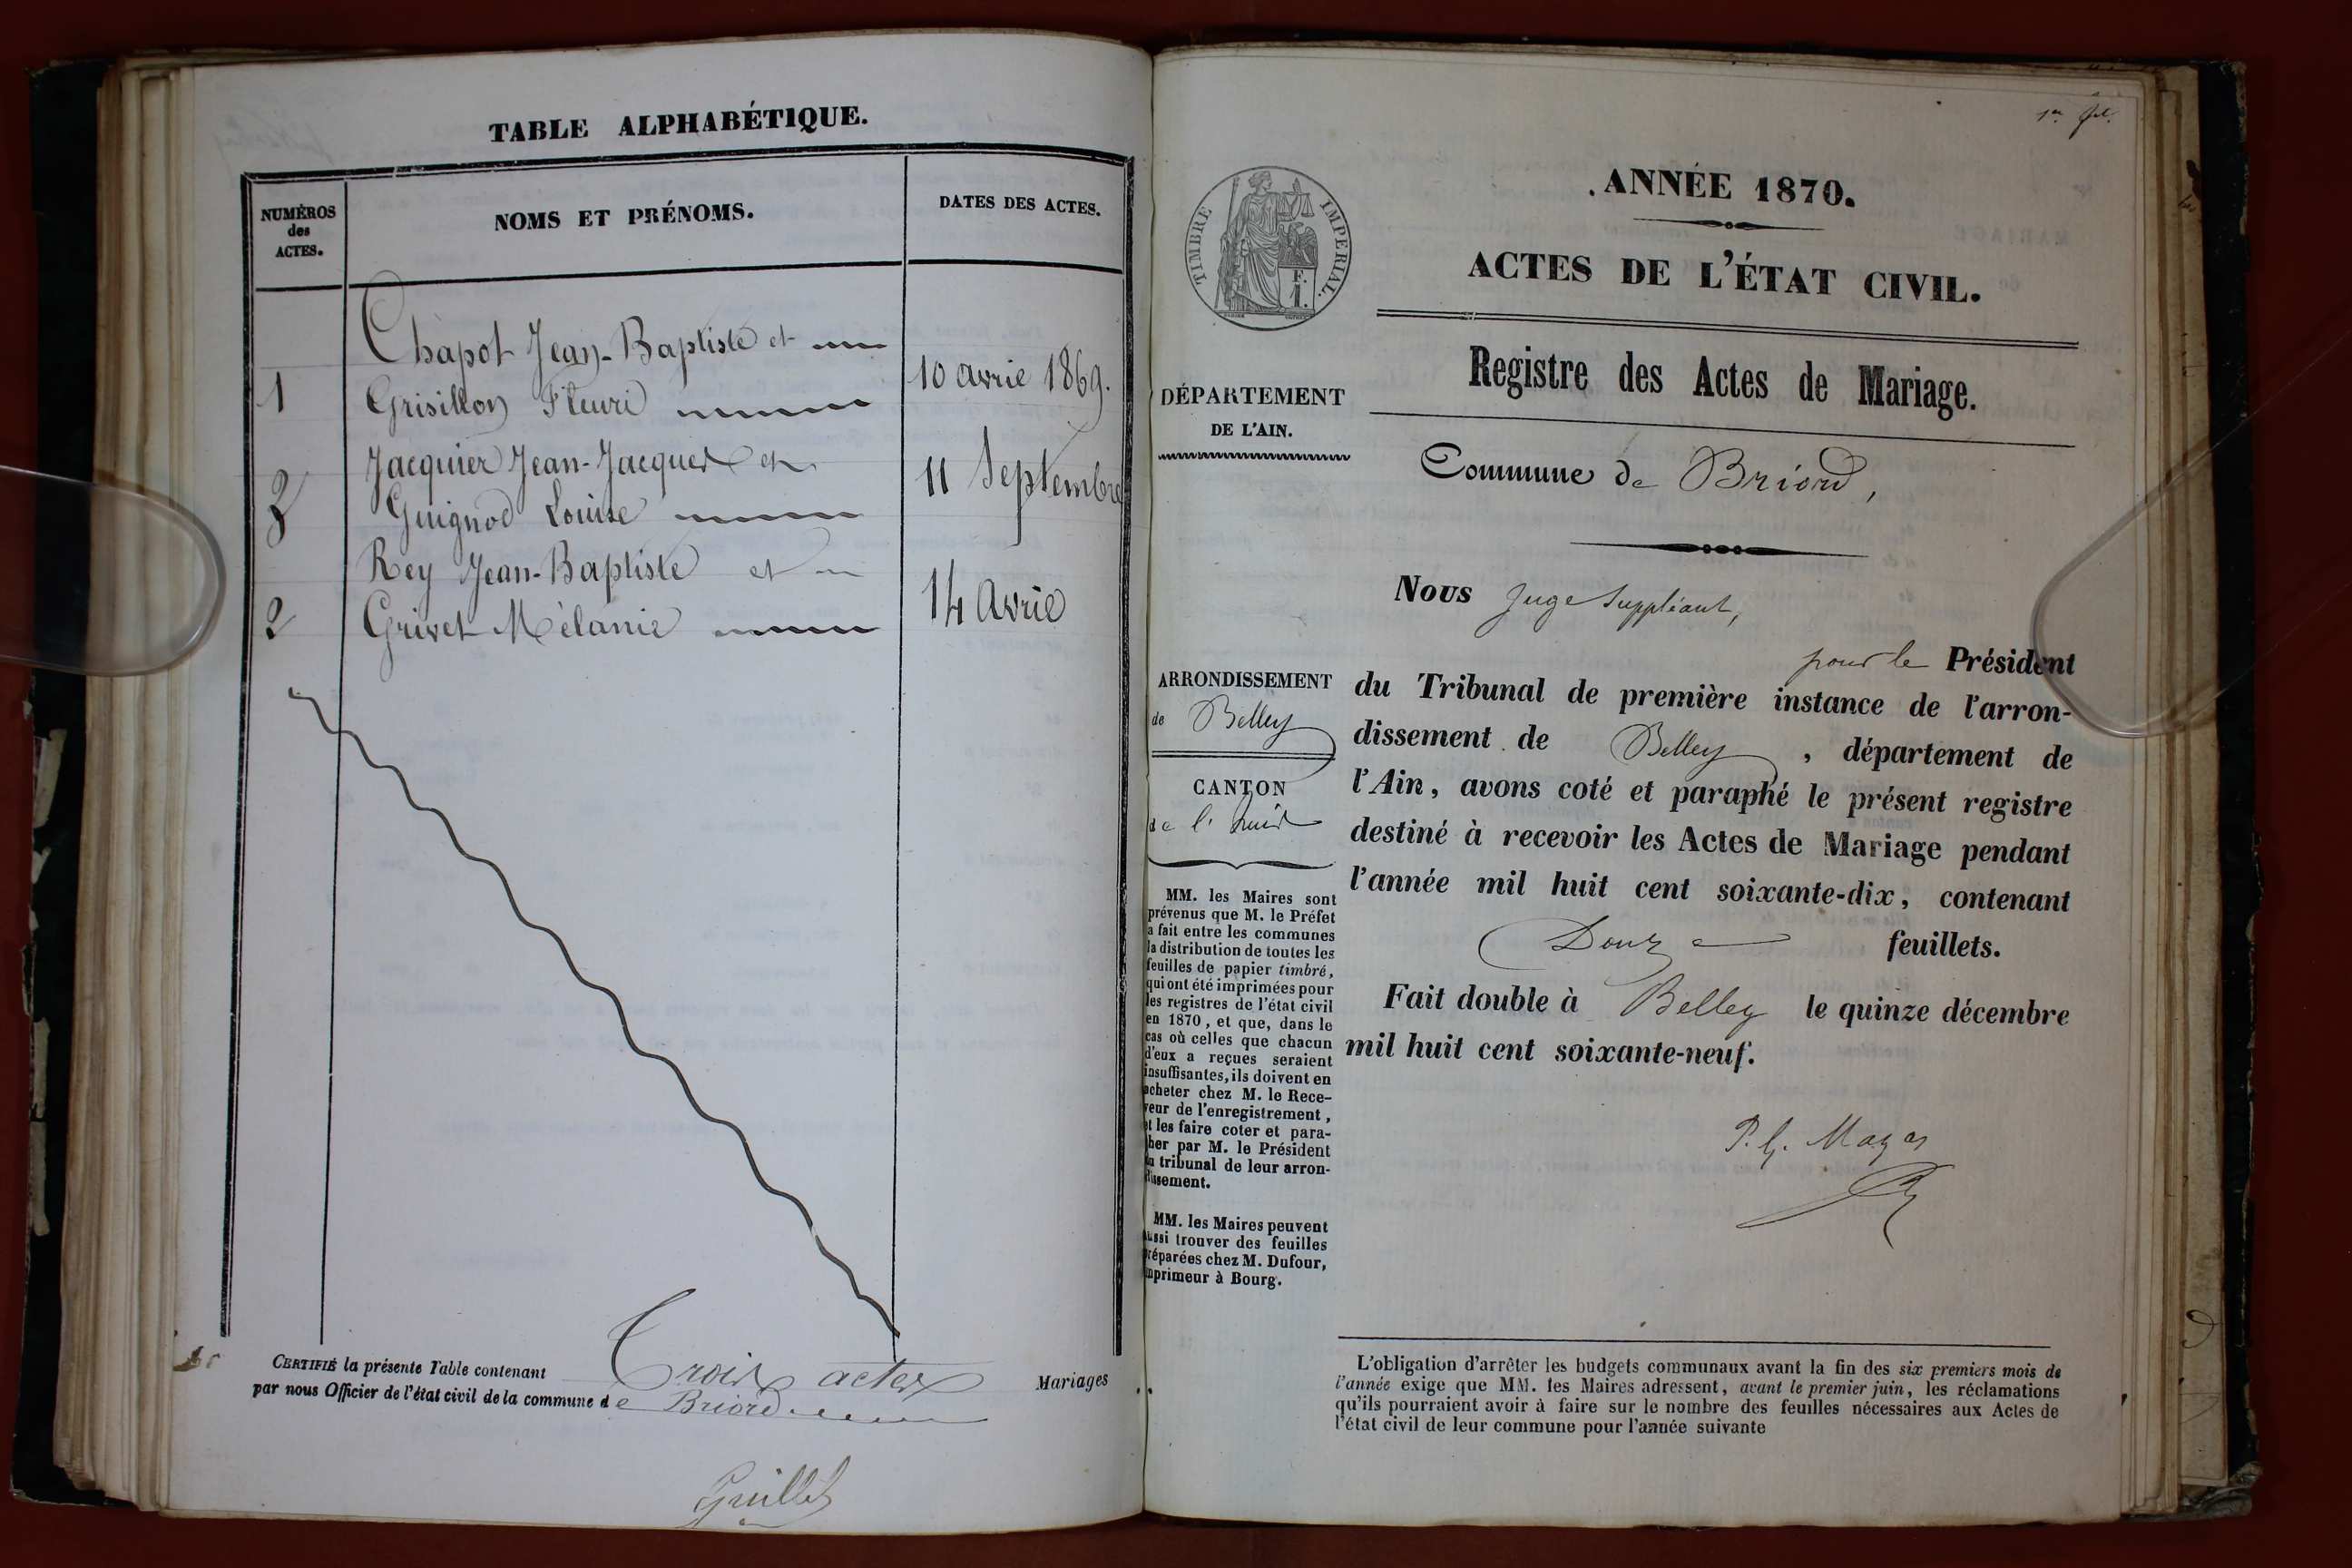 TABLE ALPHABÉTIQUE.
NUMÉROS
des
ACTES.
NOMS ET PRÉNOMS.
DATES DES ACTES.
Chapot Jean-Baptiste et
1
Grisillon Fleuri
10 avril 1869.
Jacquier Jean-Jacques et
3
Guignod Louise
11 Septembre
Rey Jean-Baptiste et
2
Grivet Mélanie
14 Avril
CERTIFIÉ la présente Table contenant Trois actes Mariages
par nous Officier de l'état civil de la commune de Briord
Guillet
1er fel.
ANNÉE 1870.
TIMBRE IMPERIAL.
F.
1.
ACTES DE L'ÉTAT CIVIL.
Registre des Actes de Mariage.
DÉPARTEMENT
DE L'AIN.
Commune de Briord,
Nous Juge Suppléant,
pour le Président
ARRONDISSEMENT
de Belley
CANTON
de l'huis
du Tribunal de première instance de l'arron-
dissement de Belley, département de
l'Ain, avons coté et paraphé le présent registre
destiné à recevoir les Actes de Mariage pendant
l'année mil huit cent soixante-dix, contenant
Douze feuillets.
Fait double à Belley le quinze décembre
mil huit cent soixante-neuf.
MM. les Maires sont
prévenus que M. le Préfet
a fait entre les communes
la distribution de toutes les
feuilles de papier timbré,
qui ont été imprimées pour
les registres de l'état civil
en 1870, et que, dans le
cas où celles que chacun
d'eux a reçues seraient
insuffisantes, ils doivent en
acheter chez M. le Rece-
veur de l'enregistrement,
et les faire coter et para-
pher par M. le Président
du tribunal de leur arron-
dissement.
MM. les Maires peuvent
aussi trouver des feuilles
préparées chez M. Dufour,
imprimeur à Bourg.
L'obligation d'arrêter les budgets communaux avant la fin des six premiers mois de
l'année exige que MM. les Maires adressent, avant le premier juin, les réclamations
qu'ils pourraient avoir à faire sur le nombre des feuilles nécessaires aux Actes de
l'état civil de leur commune pour l'année suivante